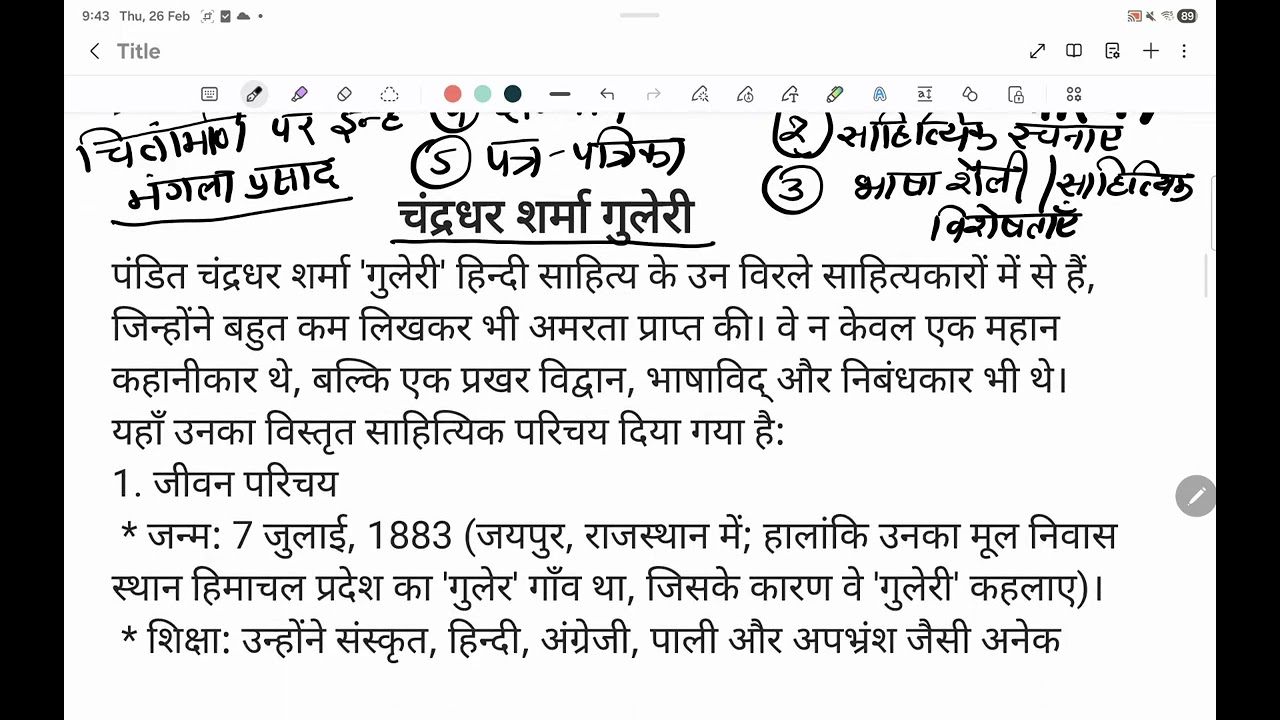 9:43 Thu, 26 Feb
89
Title
चिंतामणि पर इन्हें
मंगला प्रसाद
5 पत्र-पत्रिका
2 साहित्यिक रचनाएँ
3 भाषा शैली / साहित्यिक
विशेषताएँ
चंद्रधर शर्मा गुलेरी
पंडित चंद्रधर शर्मा 'गुलेरी' हिन्दी साहित्य के उन विरले साहित्यकारों में से हैं,
जिन्होंने बहुत कम लिखकर भी अमरता प्राप्त की। वे न केवल एक महान
कहानीकार थे, बल्कि एक प्रखर विद्वान, भाषाविद् और निबंधकार भी थे।
यहाँ उनका विस्तृत साहित्यिक परिचय दिया गया है:
1. जीवन परिचय
* जन्म: 7 जुलाई, 1883 (जयपुर, राजस्थान में; हालांकि उनका मूल निवास
स्थान हिमाचल प्रदेश का 'गुलेर' गाँव था, जिसके कारण वे 'गुलेरी' कहलाए)।
* शिक्षा: उन्होंने संस्कृत, हिन्दी, अंग्रेजी, पाली और अपभ्रंश जैसी अनेक